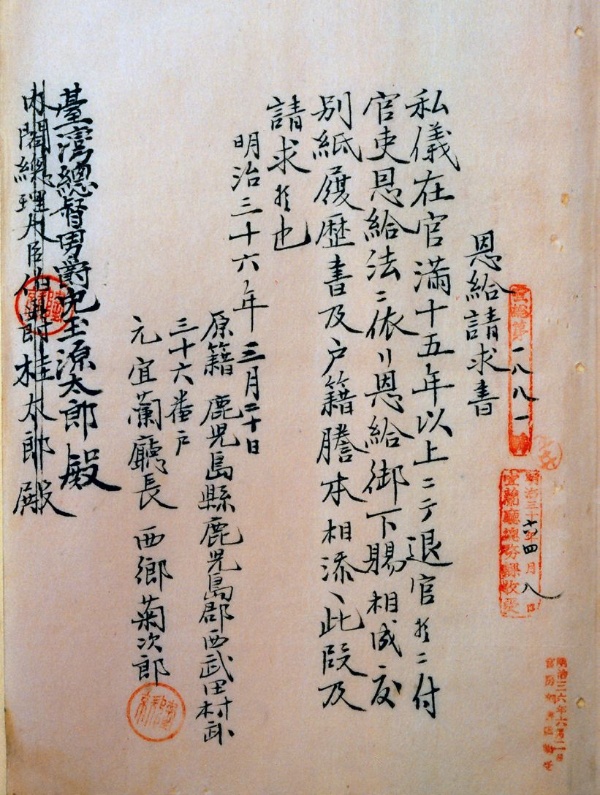 恩給請求書
私儀在官滿十五年以上ニテ退官候ニ付
官吏恩給法ニ依リ恩給御下賜相成度
別紙履歷書及戶籍謄本相添ヘ此段及
請求候也
明治三十六年三月二十日
原籍 鹿兒島縣鹿兒島郡西武田村武
三十六番戶
元宜蘭廳長 西鄉菊次郎
臺灣總督男爵兒玉源太郎殿
內閣總理大臣伯爵桂太郎殿
一八八一
明治三十六年四月八日
宜蘭廳總務課收受
明治三六年六月二日